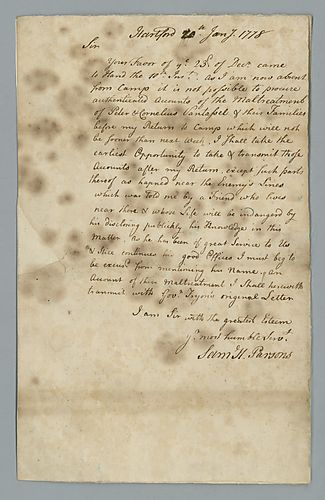 Hartford 20th Jany. 1778
Sir
Your Favor of ye. 23d. of Decr. came
to Hand the 10th Inst. As I am now absent
from Camp it is not possible to procure
authenticated Accounts of the Maltreatment
of Peter & Cornelius Vantassel & their Families
before my Return to Camp which will not
be sooner than next Week, I shall take the
earliest Opportunity to take & transmit those
Accounts after my Return, except such parts
thereof as hapned near the Enemy's Lines
which was told me by a Friend who lives
near there & whose Life will be indangerd by
his disclosing publickly his Knowledge in this
Matter, as he has been of great Service to Us
& still continues his good Offices I must beg to
be excusd from mentioning his Name, An
Account of their Maltreatment I shall herewith
transmit with Gov. Tryons original Letter
I am Sir with the greatest Esteem
yr. most humble Servt.
Sam H. Parsons